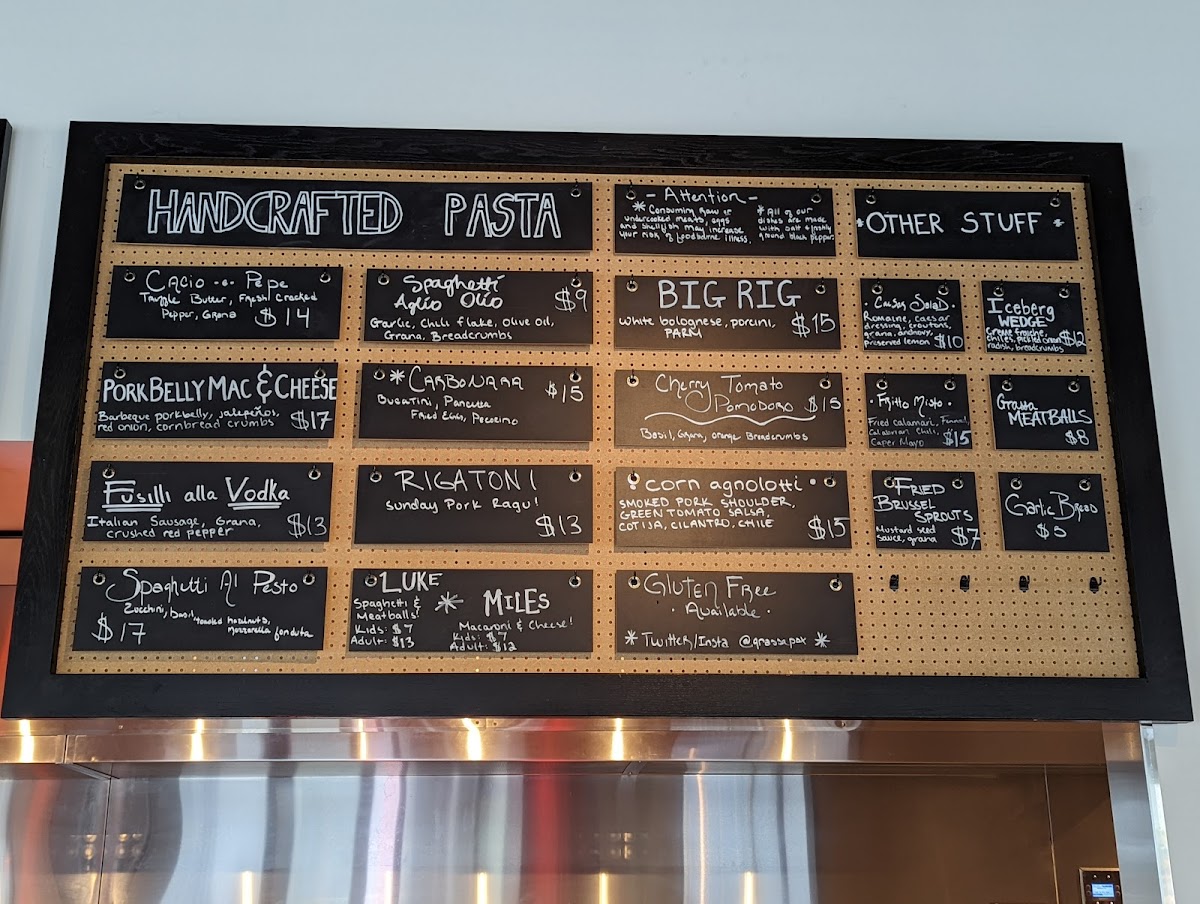 HANDCRAFTED PASTA
- Attention -
* Consuming Raw or
undercooked meats, eggs
and shellfish may increase
your risk of foodborne illness.
* All of our
dishes are made
with salt & freshly
ground black pepper.
* OTHER STUFF *
Cacio e Pepe
Truffle Butter, Fresh Cracked
Pepper, Grana $14
Spaghetti
Aglio Olio $9
Garlic, Chili flake, Olive Oil,
Grana, Breadcrumbs
BIG RIG
white bolognese, porcini,
PARM $15
Caesar Salad
Romaine, caesar
dressing, croutons,
grana, anchovy,
preserved lemon $10
Iceberg
WEDGE
Creme fraiche,
chiles, pickled onion
radish, breadcrumbs $12
PORK BELLY MAC & CHEESE
Barbeque porkbelly, jalapeños,
red onion, cornbread crumbs $17
* CARBONARA $15
Bucatini, Pancetta
Fried Egg, Pecorino
Cherry Tomato
Pomodoro $15
Basil, Grana, orange Breadcrumbs
Fritto Misto
Fried calamari, Fennel,
Calabrian Chili,
Caper Mayo $15
Grassa
MEATBALLS
$8
Fusilli alla Vodka
Italian Sausage, Grana,
crushed red pepper $13
RIGATONI
Sunday Pork Ragu!
$13
corn agnolotti
SMOKED PORK SHOULDER,
GREEN TOMATO SALSA,
COTIJA, CILANTRO, CHILE $15
FRIED
BRUSSEL
SPROUTS
Mustard seed
sauce, grana $7
Garlic Bread
$5
Spaghetti Al Pesto
Zucchini, basil, toasted hazelnuts,
mozzarella fonduta
$17
LUKE
Spaghetti &
Meatballs!
Kids: $7
Adult: $13
* MILES
Macaroni & Cheese!
Kids: $7
Adult: $12
Gluten Free
Available
* Twitter/Insta @grassapdx *